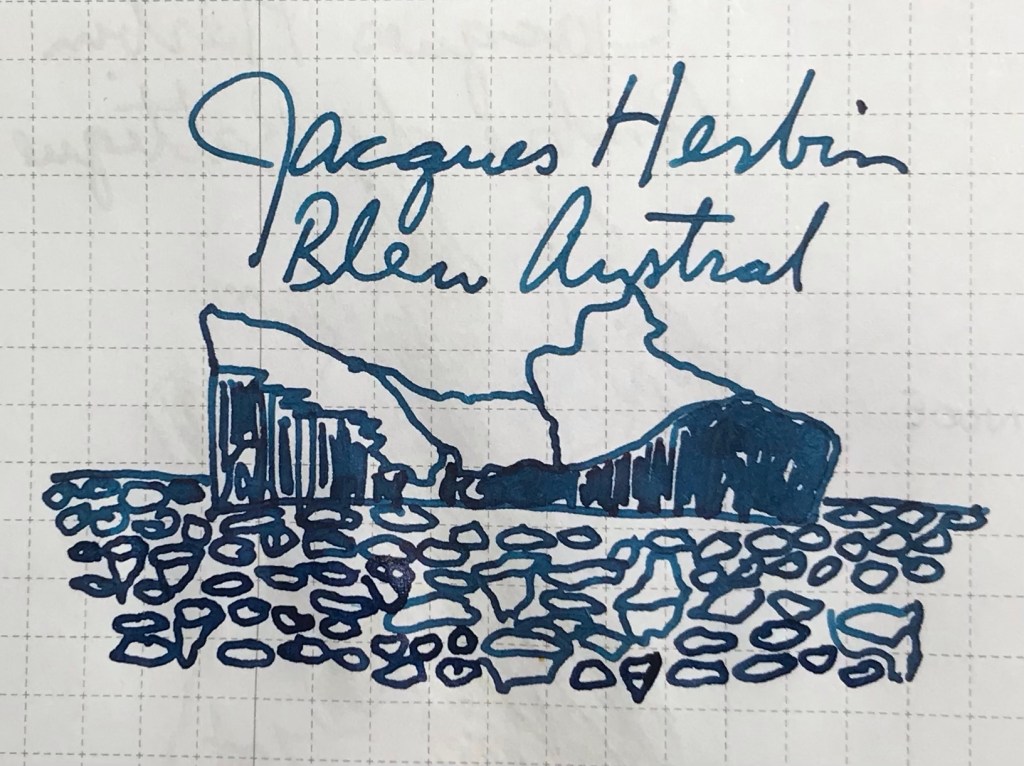 Jacques Herbin
Bleu Austral